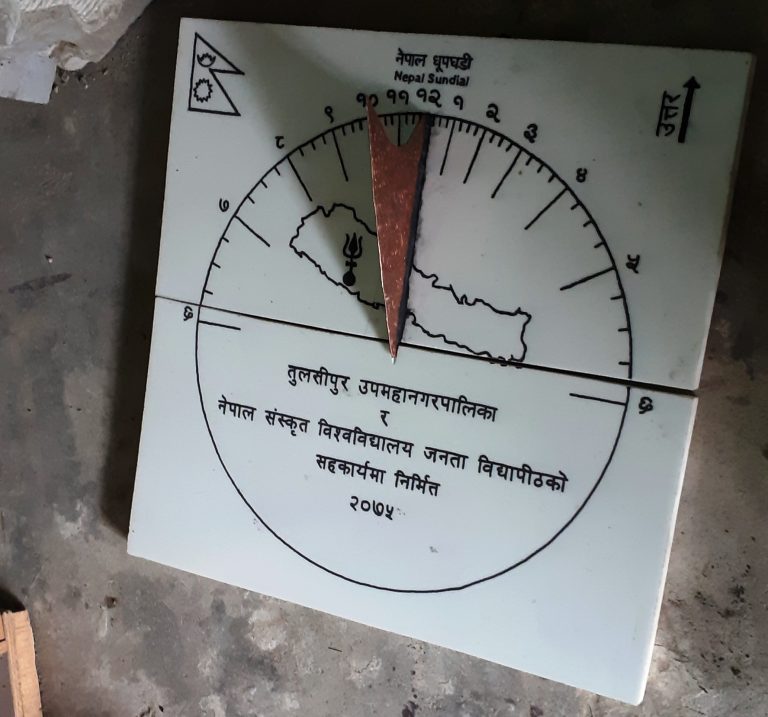 नेपाल धूपघडी
Nepal Sundial
उत्तर
६ ७ ८ ९ १० ११ १२ १ २ ३ ४ ५ ६
तुलसीपुर उपमहानगरपालिका
र
नेपाल संस्कृत विश्वविद्यालय जनता विद्यापीठको
सहकार्यमा निर्मित
२०७५